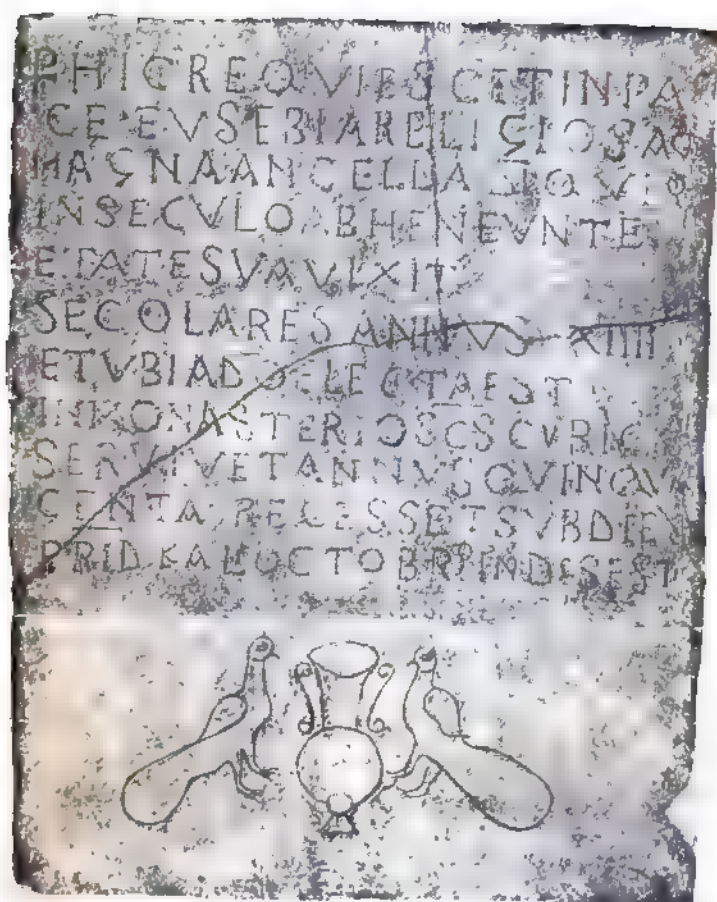 ✝HICREQVIESCETINPA
CEEVSEBIARELIGIOSA
MAGNAANCELLADÑIQVI
INSECVLOABHENEVNTE
ETATESVAVIXIT
SECOLARESANNVSXIIII
ETVBIADDOELECTAEST
INMONASTERIOSCSCVRIC
SERVIVETANNVSQVINQV
CENTARECESSETSVBDIE
PRIDKALOCTOBRINDSEST